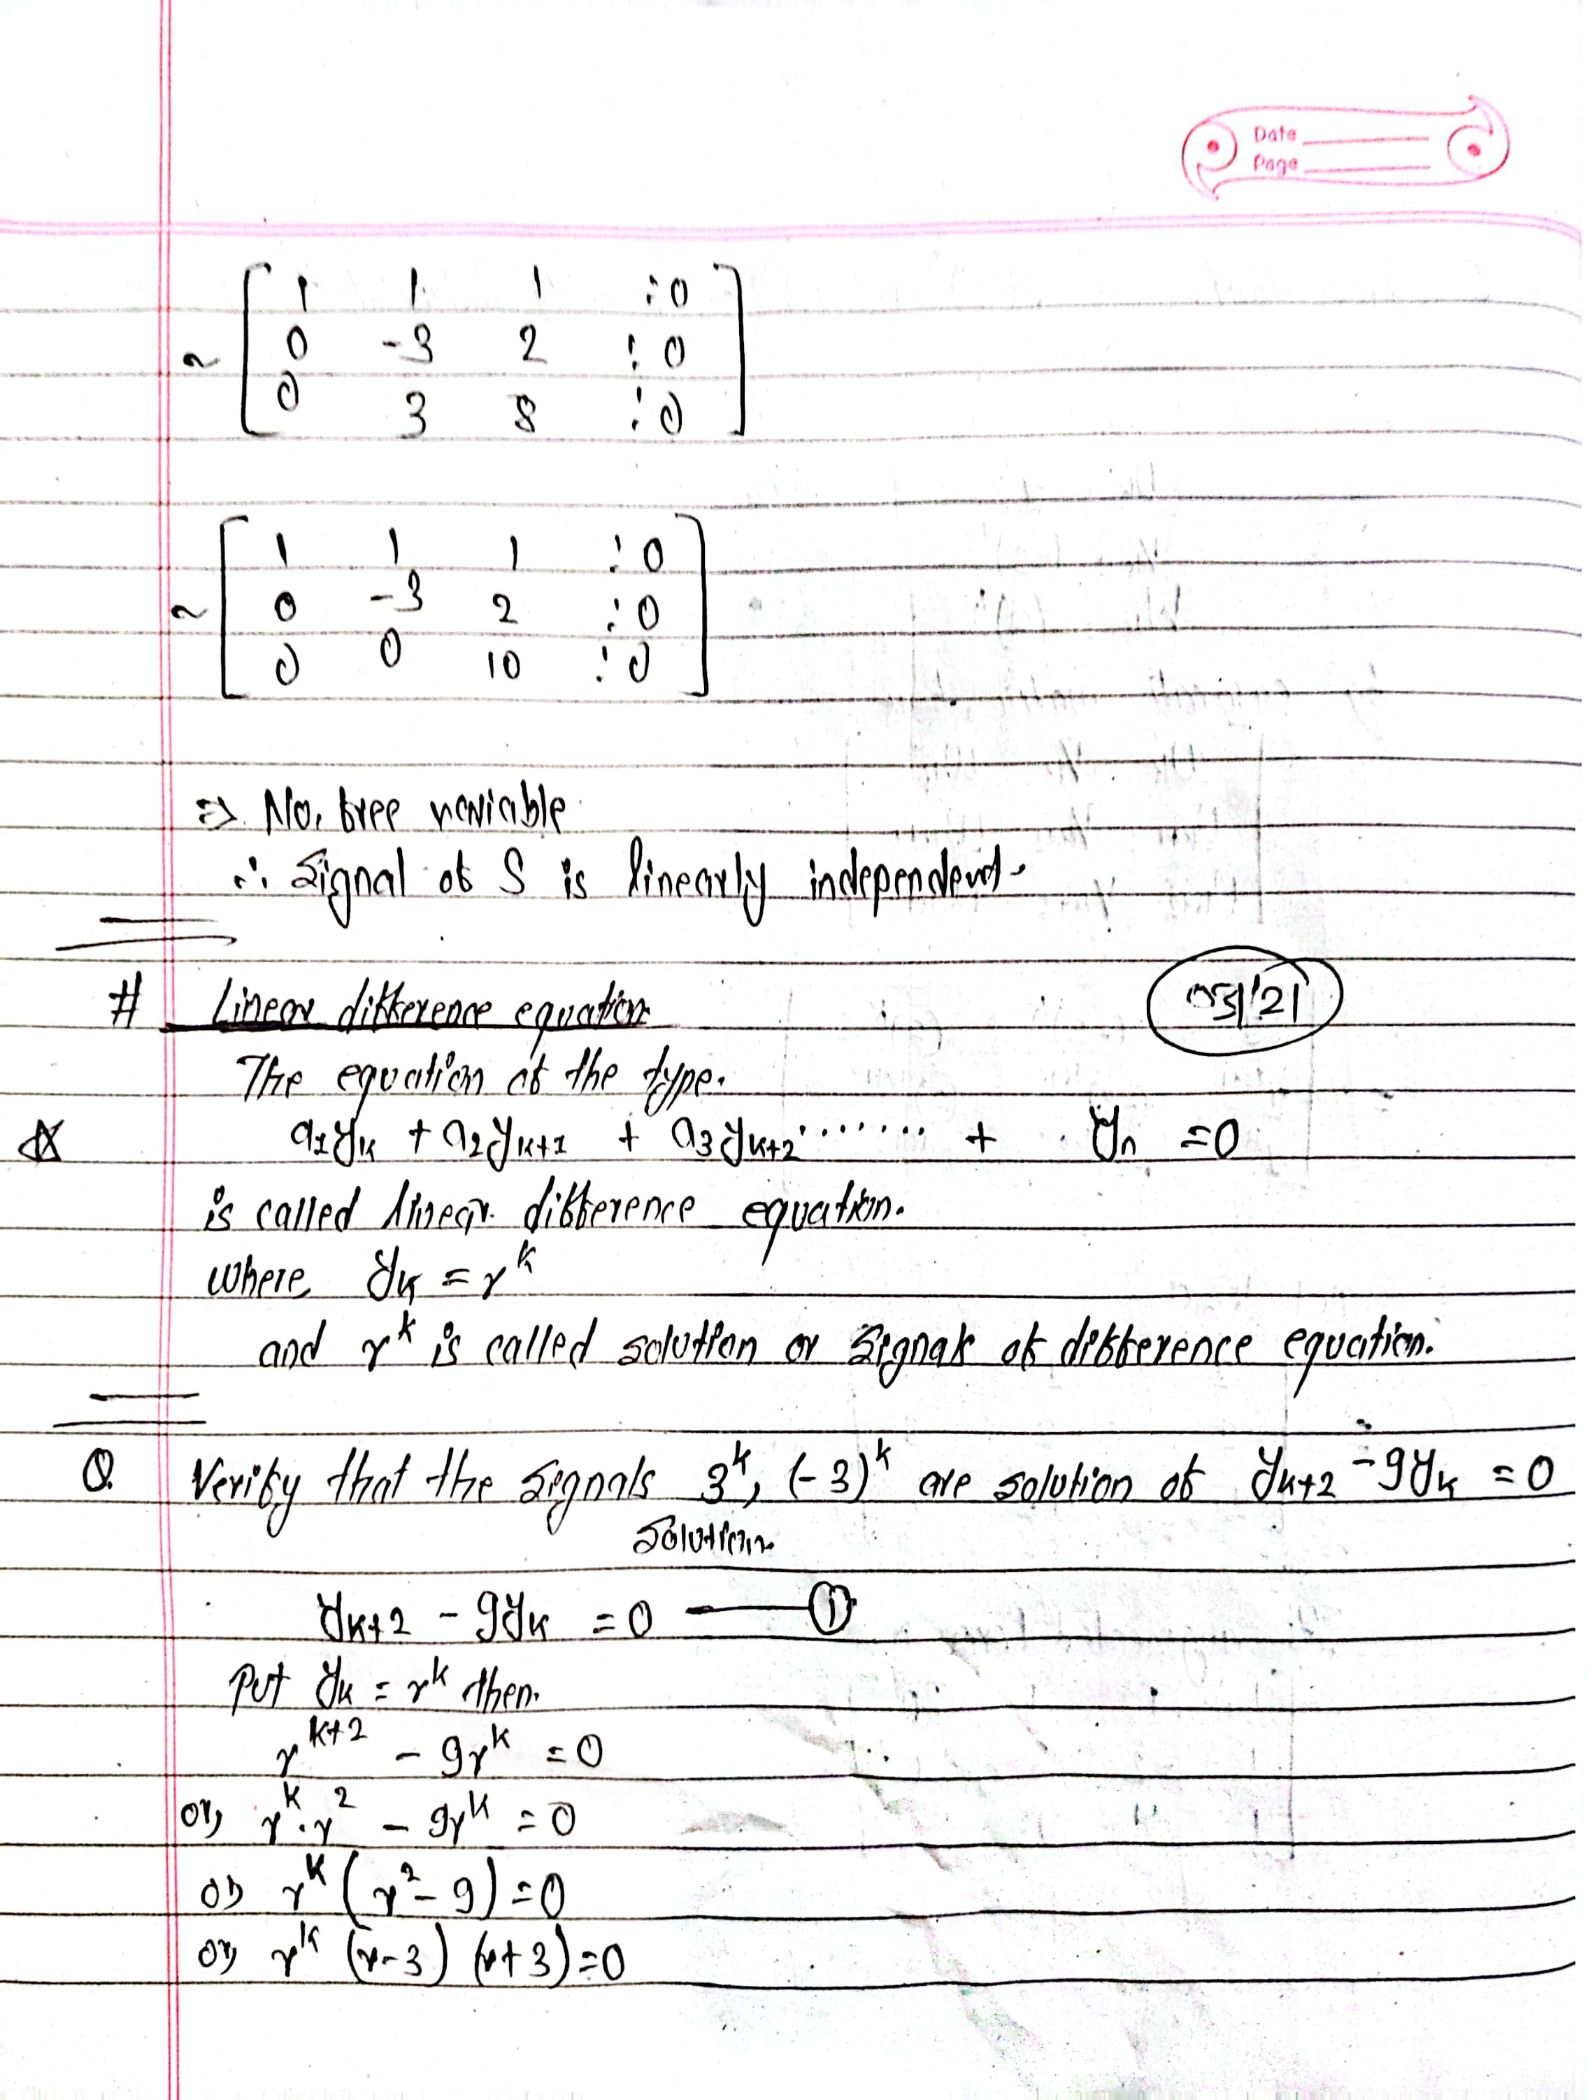 Date
Page
~ [ 1 1 1 : 0
0 -3 2 : 0
0 3 8 : 0 ]
~ [ 1 1 1 : 0
0 -3 2 : 0
0 0 10 : 0 ]
⇒ No, free variable
∴ Signal of S is linearly independent.
# Linear difference equation
The equation of the type.
a₁yₖ + a₂yₖ₊₁ + a₃yₖ₊₂ ....... + yₙ = 0
is called linear difference equation.
where yₖ = rᵏ
and rᵏ is called solution or signal of difference equation.
Q. Verify that the signals 3ᵏ, (-3)ᵏ are solution of yₖ₊₂ - 9yₖ = 0
Solution.
yₖ₊₂ - 9yₖ = 0 —— ①
Put yₖ = rᵏ then.
rᵏ⁺² - 9rᵏ = 0
or, rᵏ.r² - 9rᵏ = 0
or, rᵏ (r² - 9) = 0
or, rᵏ (r-3) (r+3) = 0